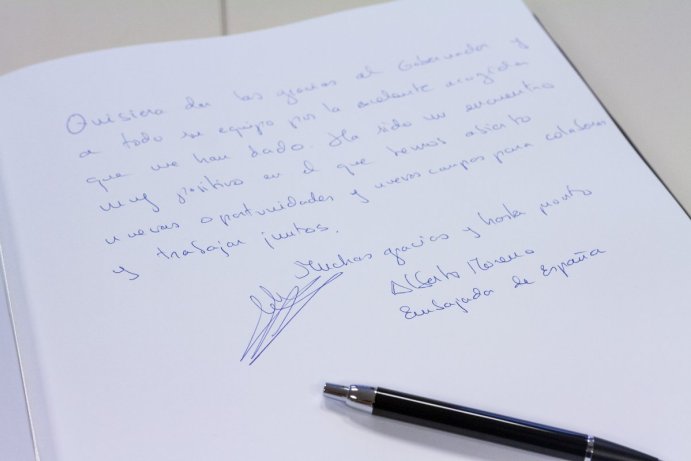 Quisiera dar las gracias al Gobernador y
a todo su equipo por la excelente acogida
que me han dado. Ha sido un encuentro
muy positivo en el que hemos abierto
nuevas oportunidades y nuevos campos para colaborar
y trabajar juntos.
Muchas gracias y hasta pronto
Alberto Moreno
Embajada de España